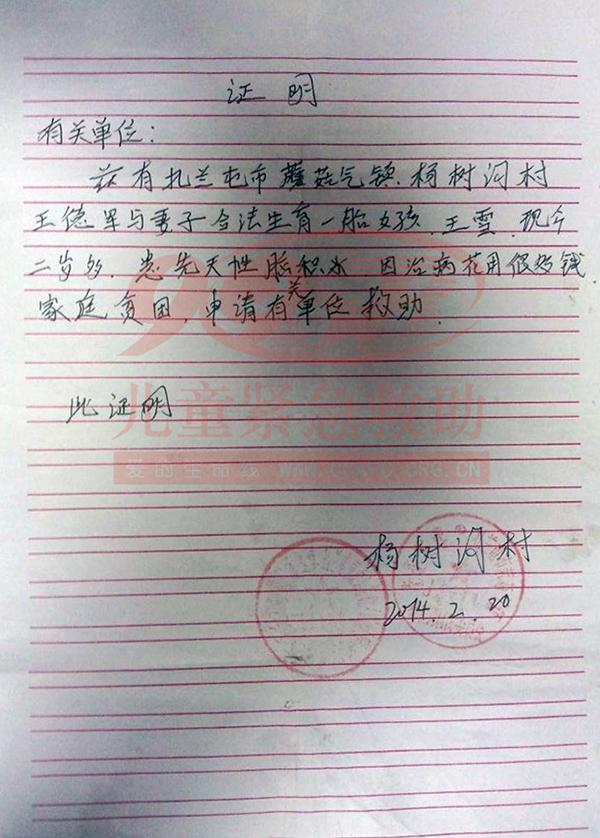 证明
有关单位:
兹有扎兰屯市蘑菇气镇.杨树沟村
王德军与妻子合法生育一胎女孩.王雪.现今
二岁多.患先天性脑积水 因治病花用很多钱
家庭贫困,申请有关单位救助.
此证明
儿童紧急救助
爱的生命线 WWW. .CN
杨树沟村
2014.2.20